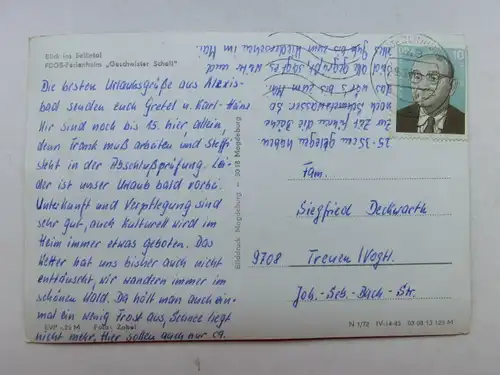 Blick ins Selketal
FDGB-Ferienheim „Geschwister Scholl"
Die besten Urlaubsgrüße aus Alexis-
bad senden euch Gretel u. Karl-Heinz
Wir sind noch bis 15. hier, allein,
denn Frank muß arbeiten und Steffi
steht in der Abschlußprüfung. Lei-
der ist unser Urlaub bald vorbei.
Unterkunft und Verpflegung sind
sehr gut, auch kulturell wird im
Heim immer etwas geboten. Das
Wetter hat uns bisher auch nicht
enttäuscht, wir wandern immer im
schönen Wald. Da hält man auch ein-
mal ein wenig Frost aus, Schnee liegt
nicht mehr. Hier sollen auch nur ca.
25-35 cm gelegen haben
Zur Zeit führen die Bäche
viel Schmelzwasser
bis zum
Wiedersehen im Mai.
EVP -,25 M Foto: Zobel
Bilddruck Magdeburg - 3018 Magdeburg
10
Fam.
Siegfried Deckwarth
9708 Treuen/Vogtl.
Joh.-Seb.-Bach-Str.
N 1/72 IV-14-45 03 06 12 123 M